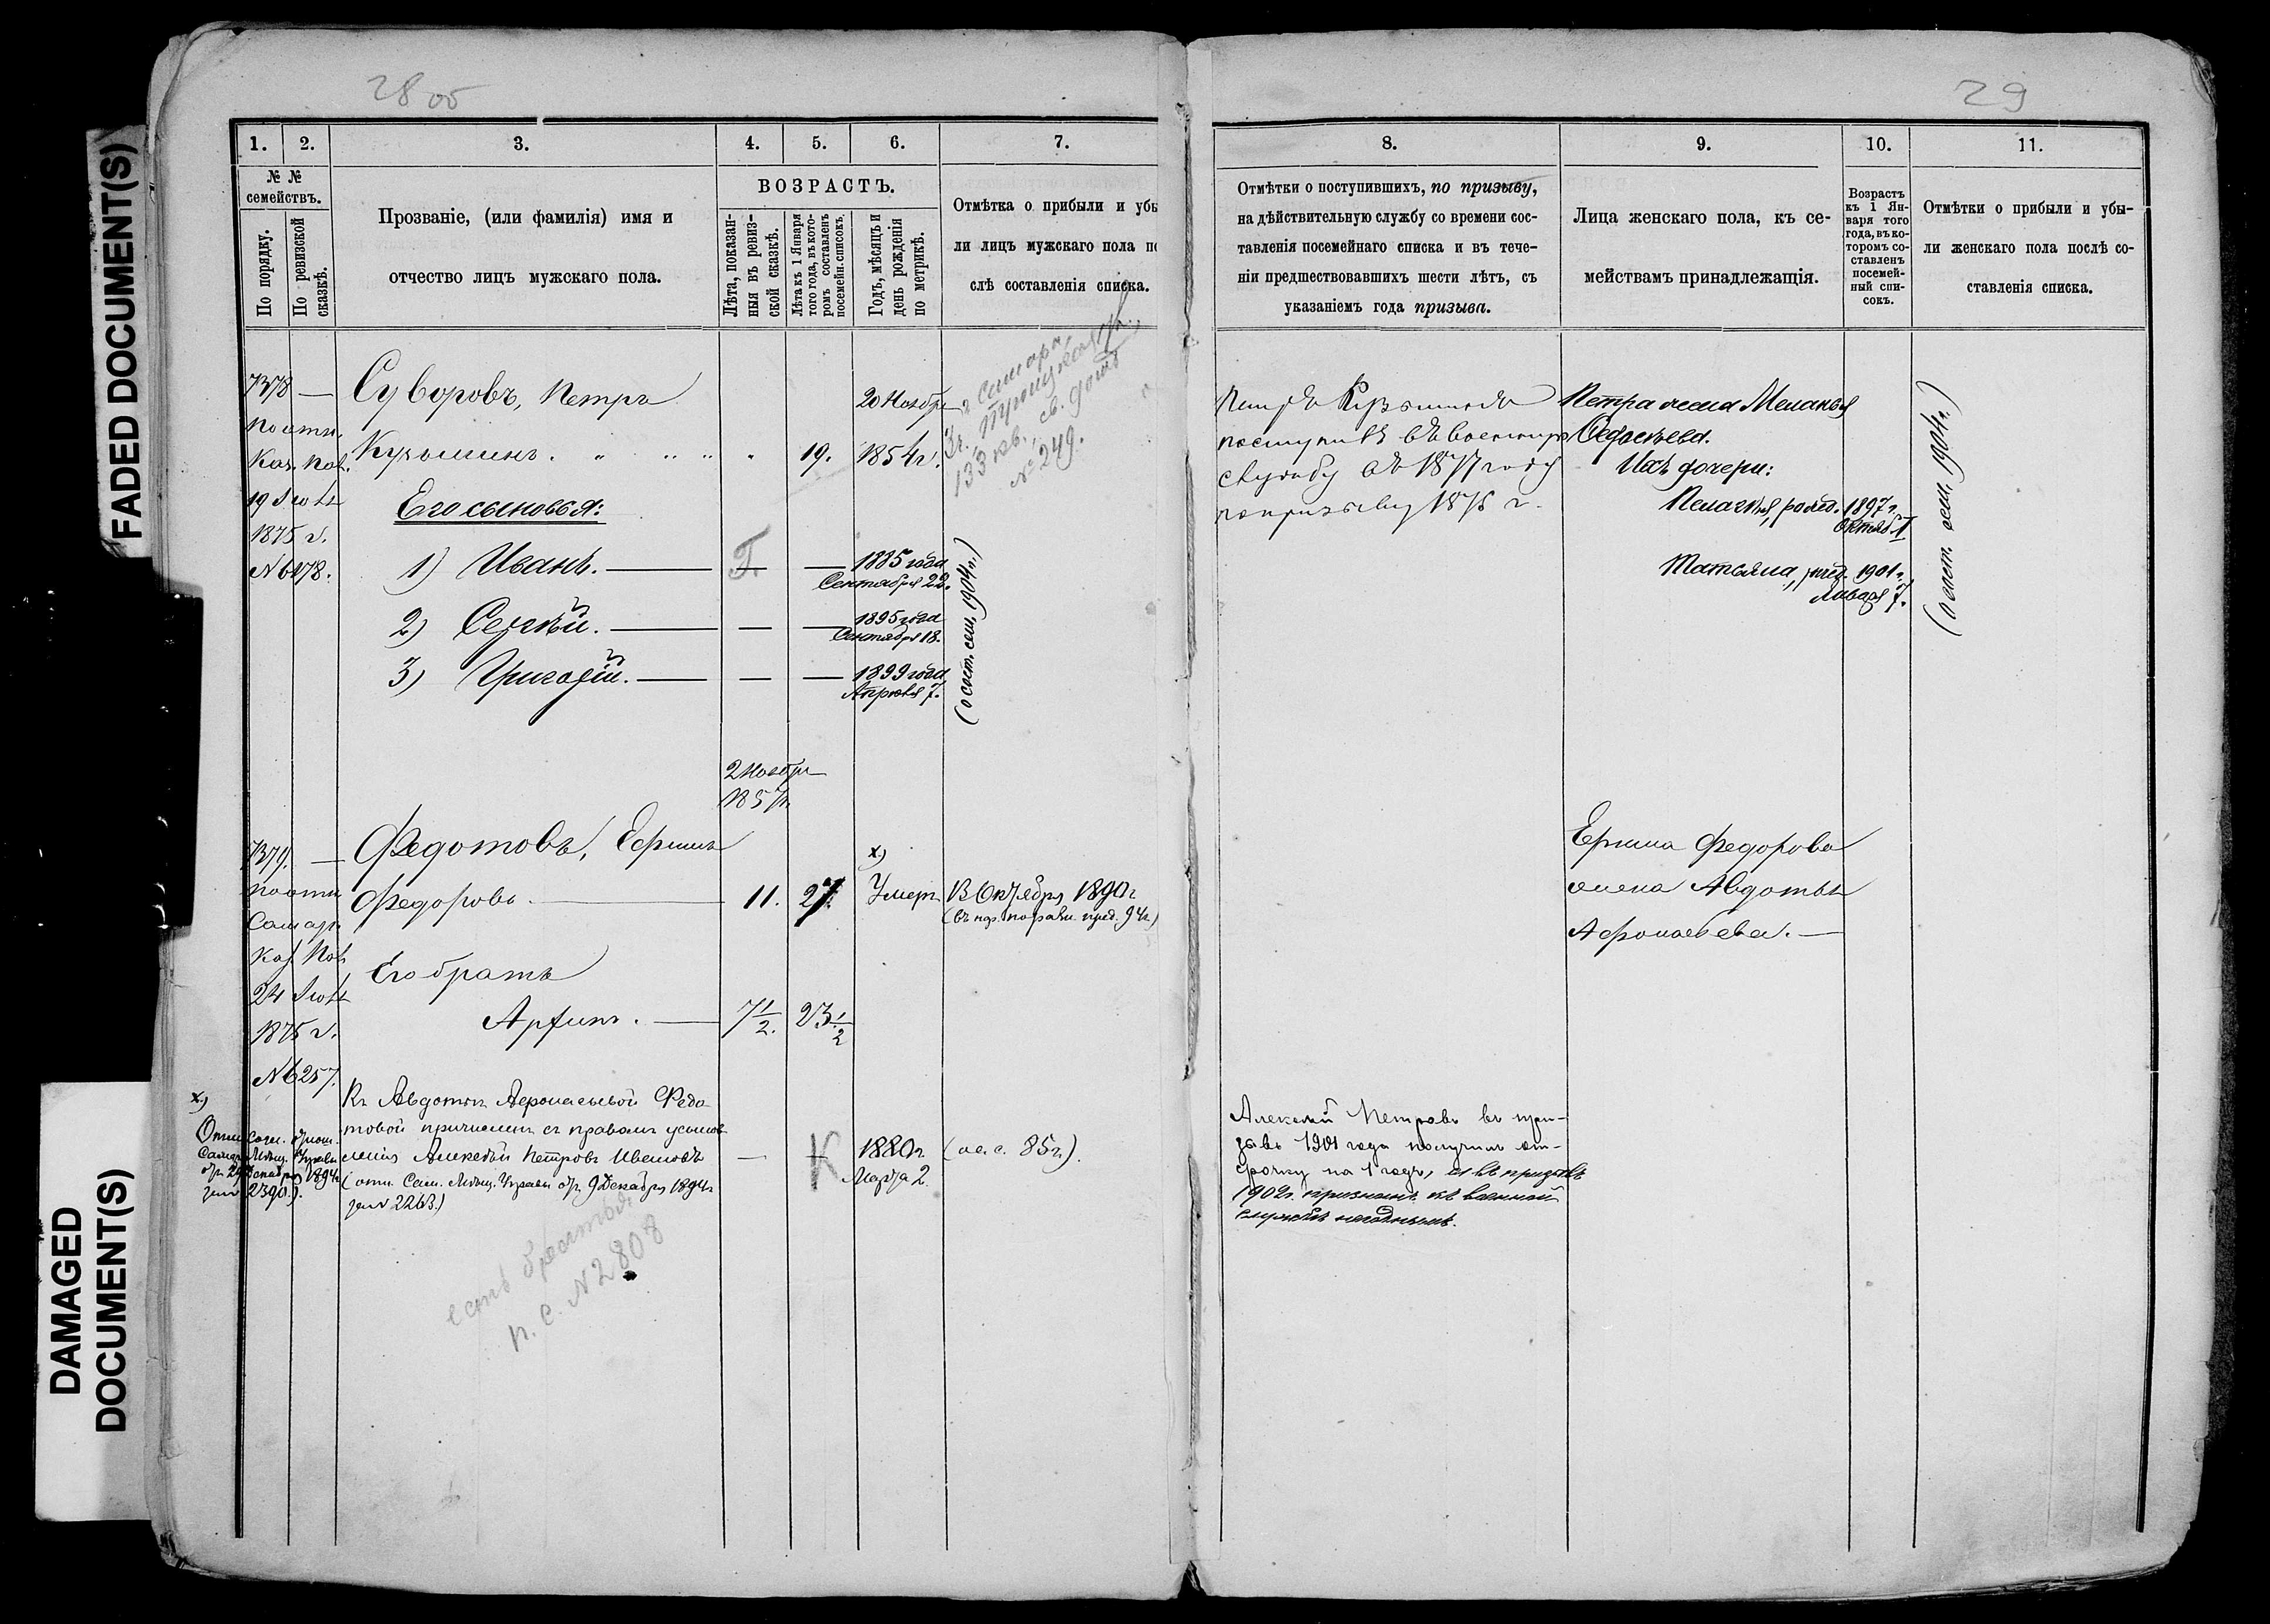 FADED DOCUMENT(S)
DAMAGED
DOCUMENT(S)
28 об
1. 2. 3. 4. 5. 6. 7.
№ №
семействъ.
По порядку.
По ревизской
сказкѣ.
Прозваніе, (или фамилія) имя и
отчество лицъ мужскаго пола.
ВОЗРАСТЪ.
Лѣта, показан-
ныя въ ревиз-
ской сказкѣ.
Лѣта къ 1 Января
того года, въ кото-
ромъ составленъ
посемейн. списокъ.
Годъ, мѣсяцъ и
день рожденія
по метрикѣ.
Отмѣтка о прибыли и убы
ли лицъ мужскаго пола по
слѣ составленія списка.
7378 —
по отн.
Каз. Пал.
1875 г.
№ 6178.
Суворовъ, Петръ
Кузьминъ. 19.
20 Ноября
1854 г.
г. Самара,
133 кв., св. домъ
№ 249.
Его сыновья:
1) Иванъ. — Г. — 1885 года
Сентября 22.
2) Сергѣй. — — — 1895 года
Сентября 18.
3) Григорій. — — — 1899 года
Апрѣля 7.
(о сост. сем. 1904 г.)
2 Ноября
1857 г.
7379. —
по отн.
Самар.
Каз. Пал.
24
1875 г.
№ 6257.
Федотовъ, Ефимъ
Федоровъ — 11. 27.
х)
Умеръ 13 Октября 1890 г.
Его братъ
Артинъ. — 7 1/2. 23 1/2
Къ Авдотьѣ Афонасьевой Федо-
товой причисленъ съ правами усынов-
ленія Алексѣй Петровъ Ивановъ —
(отн. Сам. Мѣщ. Управы отъ 9 Декабря 1894 г.
за № 2263.)
К
1880 г.
Марта 2.
(м. с. 85 г.).
х)
Самар. Мѣщ. Управы
отъ 29 Декабря 1894 г.
за № 2390).
есть братья
п. с. № 2808
29
8. 9. 10. 11.
Отмѣтки о поступившихъ, по призыву,
на дѣйствительную службу со времени сос-
тавленія посемейнаго списка и въ тече-
ніи предшествовавшихъ шести лѣтъ, съ
указаніемъ года призыва.
Лица женскаго пола, къ се-
мействамъ принадлежащія.
Возрастъ
къ 1 Ян-
варя того
года, въ ко-
торомъ со-
ставленъ
посемей-
ный спи-
сокъ.
Отмѣтки о прибыли и убы-
ли женскаго пола послѣ со-
ставленія списка.
Петръ Кузьминъ
поступилъ въ военную
службу въ 1877 году
по призыву 1875 г.
Петра жена Меланья
Ѳедосѣева.
Ихъ дочери:
Пелагѣя, рожд. 1897 г.
Октяб. 1
Татьяна, рожд. 1901 г.
Января 7.
(о сост. сем. 1904 г.)
Ефима Федорова
жена Авдотья
Афонасьева. —
Алексѣй Петровъ въ при-
зывъ 1901 года получилъ от-
срочку на 1 годъ, а въ призывъ
1902 г. признанъ къ военной
службѣ негоднымъ.